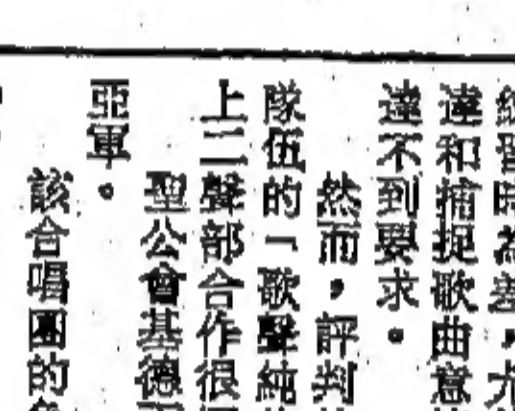 練習時為差，尤
達和捕捉歌曲意
達不到要求。
然而，評判
隊伍的「歌聲純
上二聲部合作很
聖公會基德
亞軍。
該合唱團的